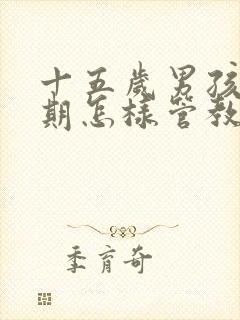 十五岁男孩
期怎样管教
季育奇